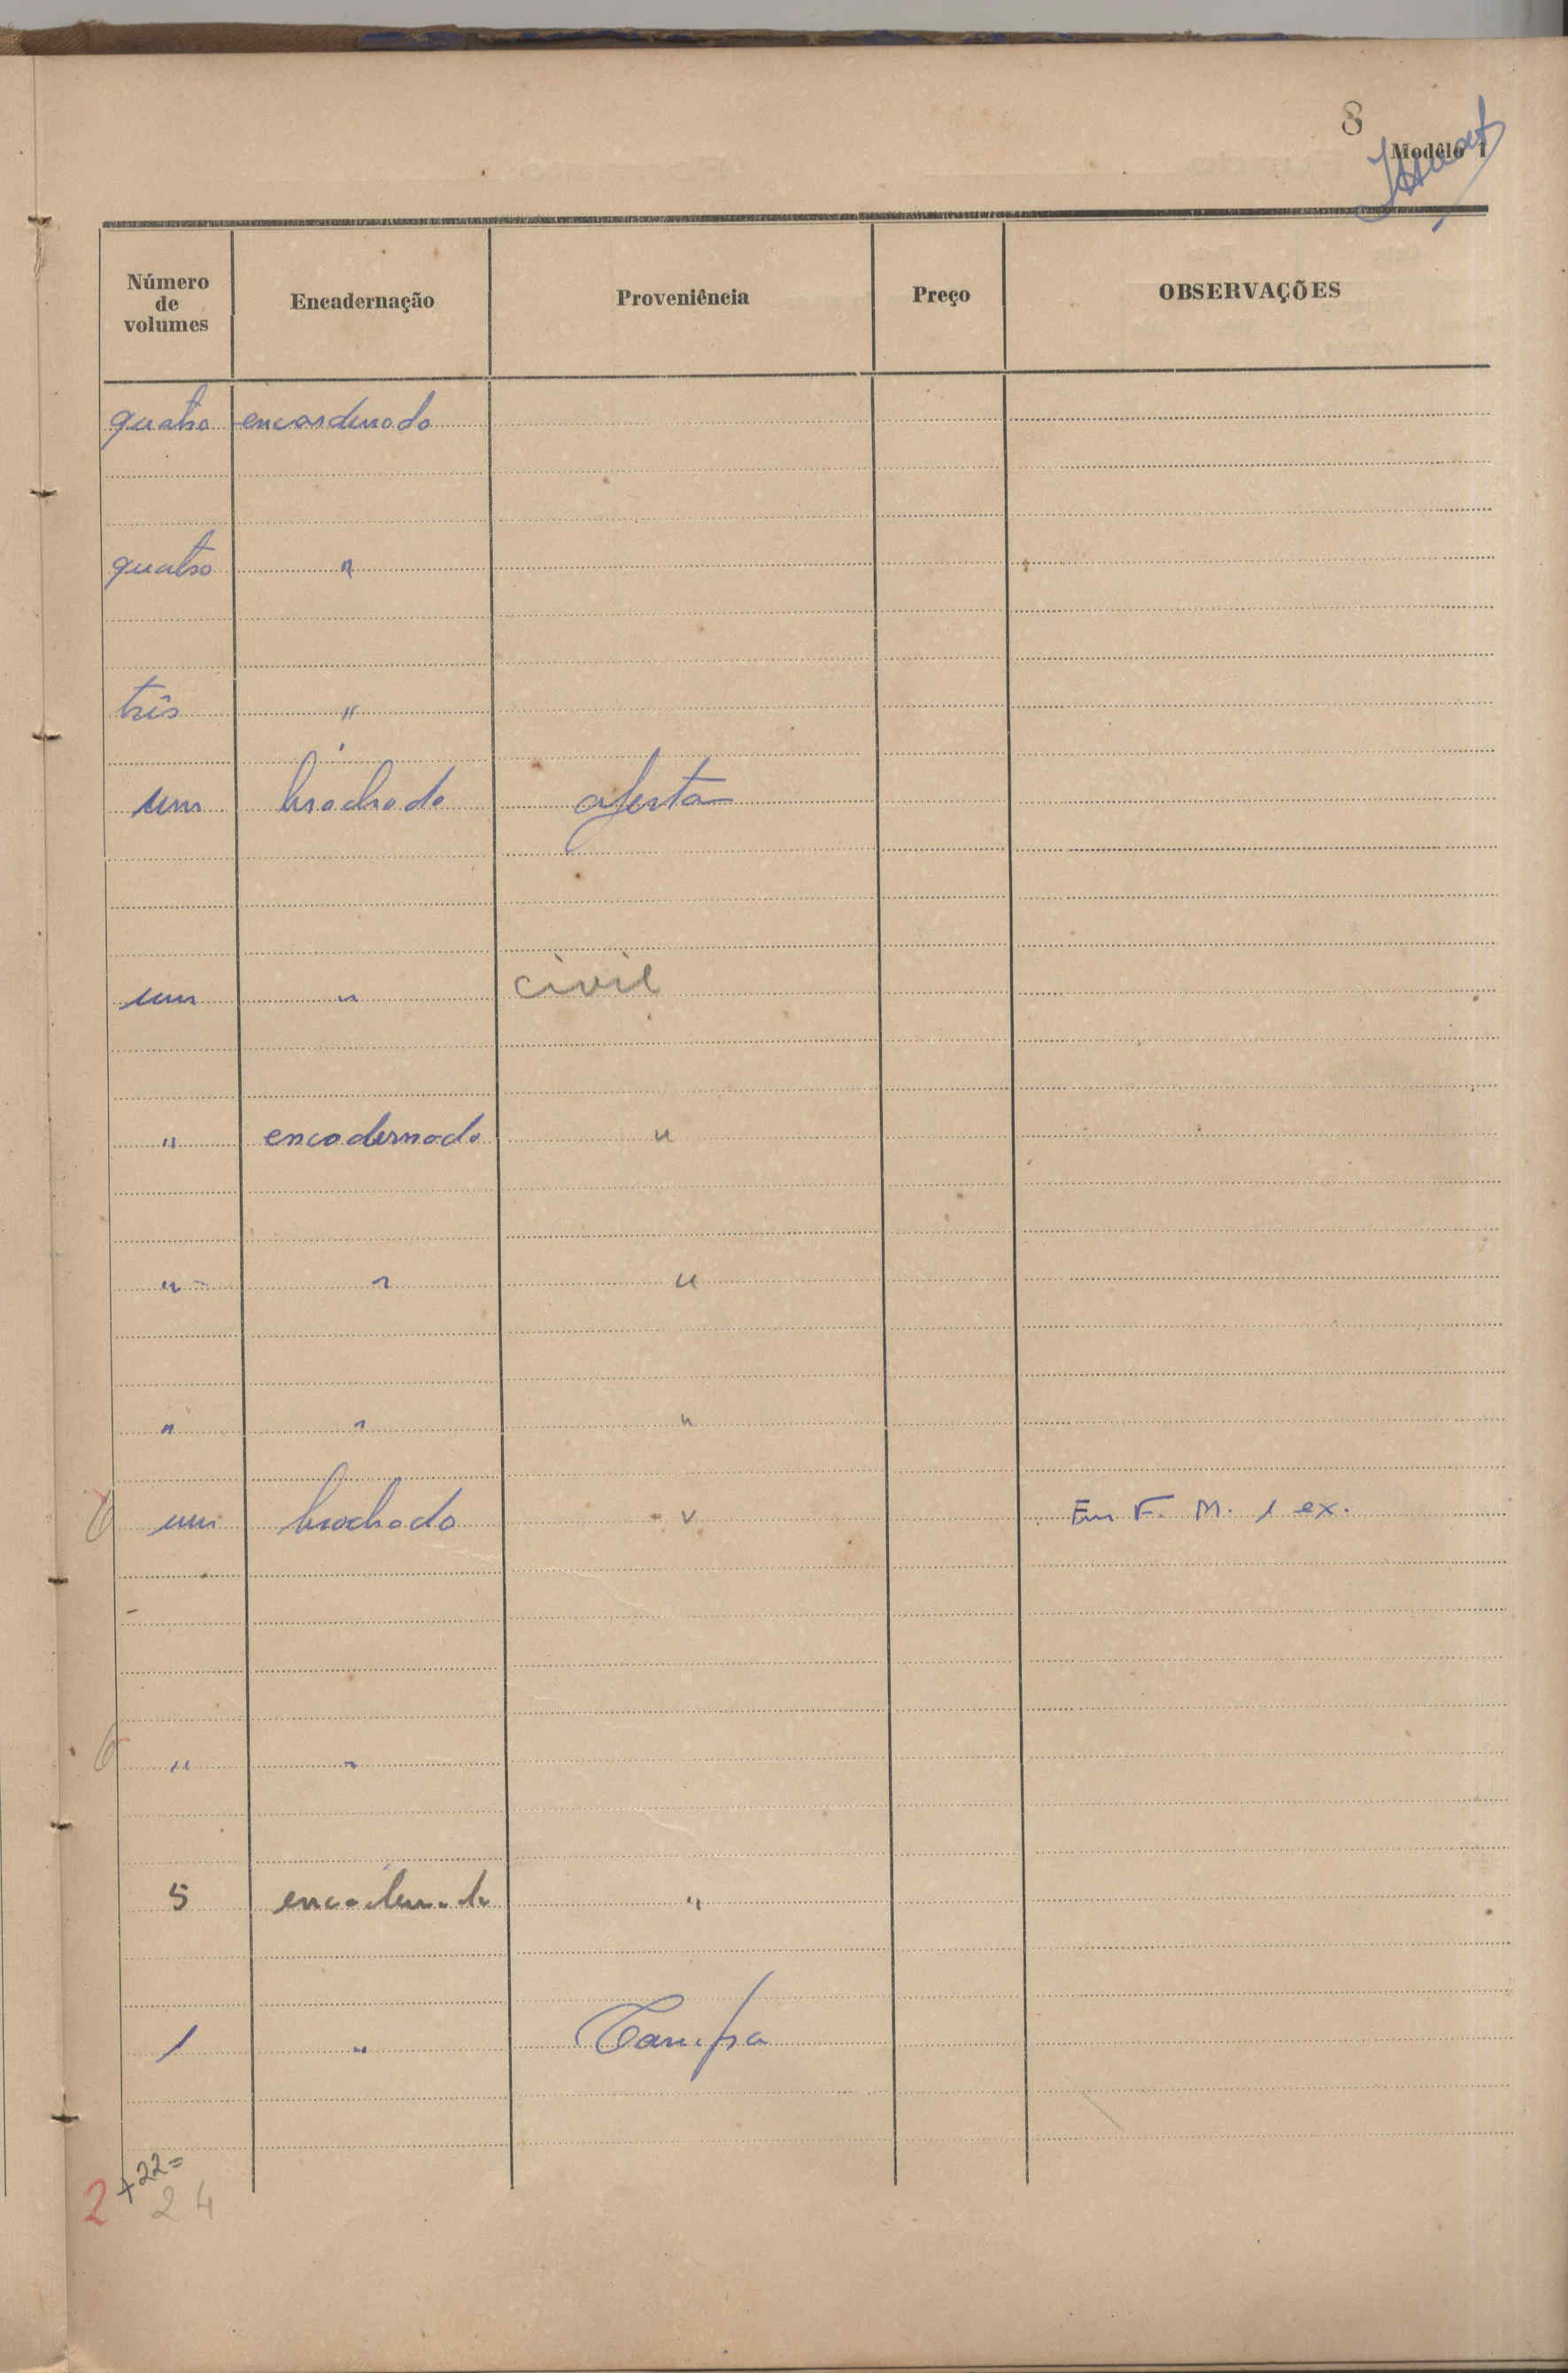 8
Modêlo 1
Número de volumes Encadernação Proveniência Preço OBSERVAÇÕES
quatro encardenado
quatro "
três "
um brochado oferta
um " civil
" encadernado "
" " "
" " "
um brochado " Em F. M. 1 ex.
" "
5 encadernado "
1 " Campa
2 +22=
24